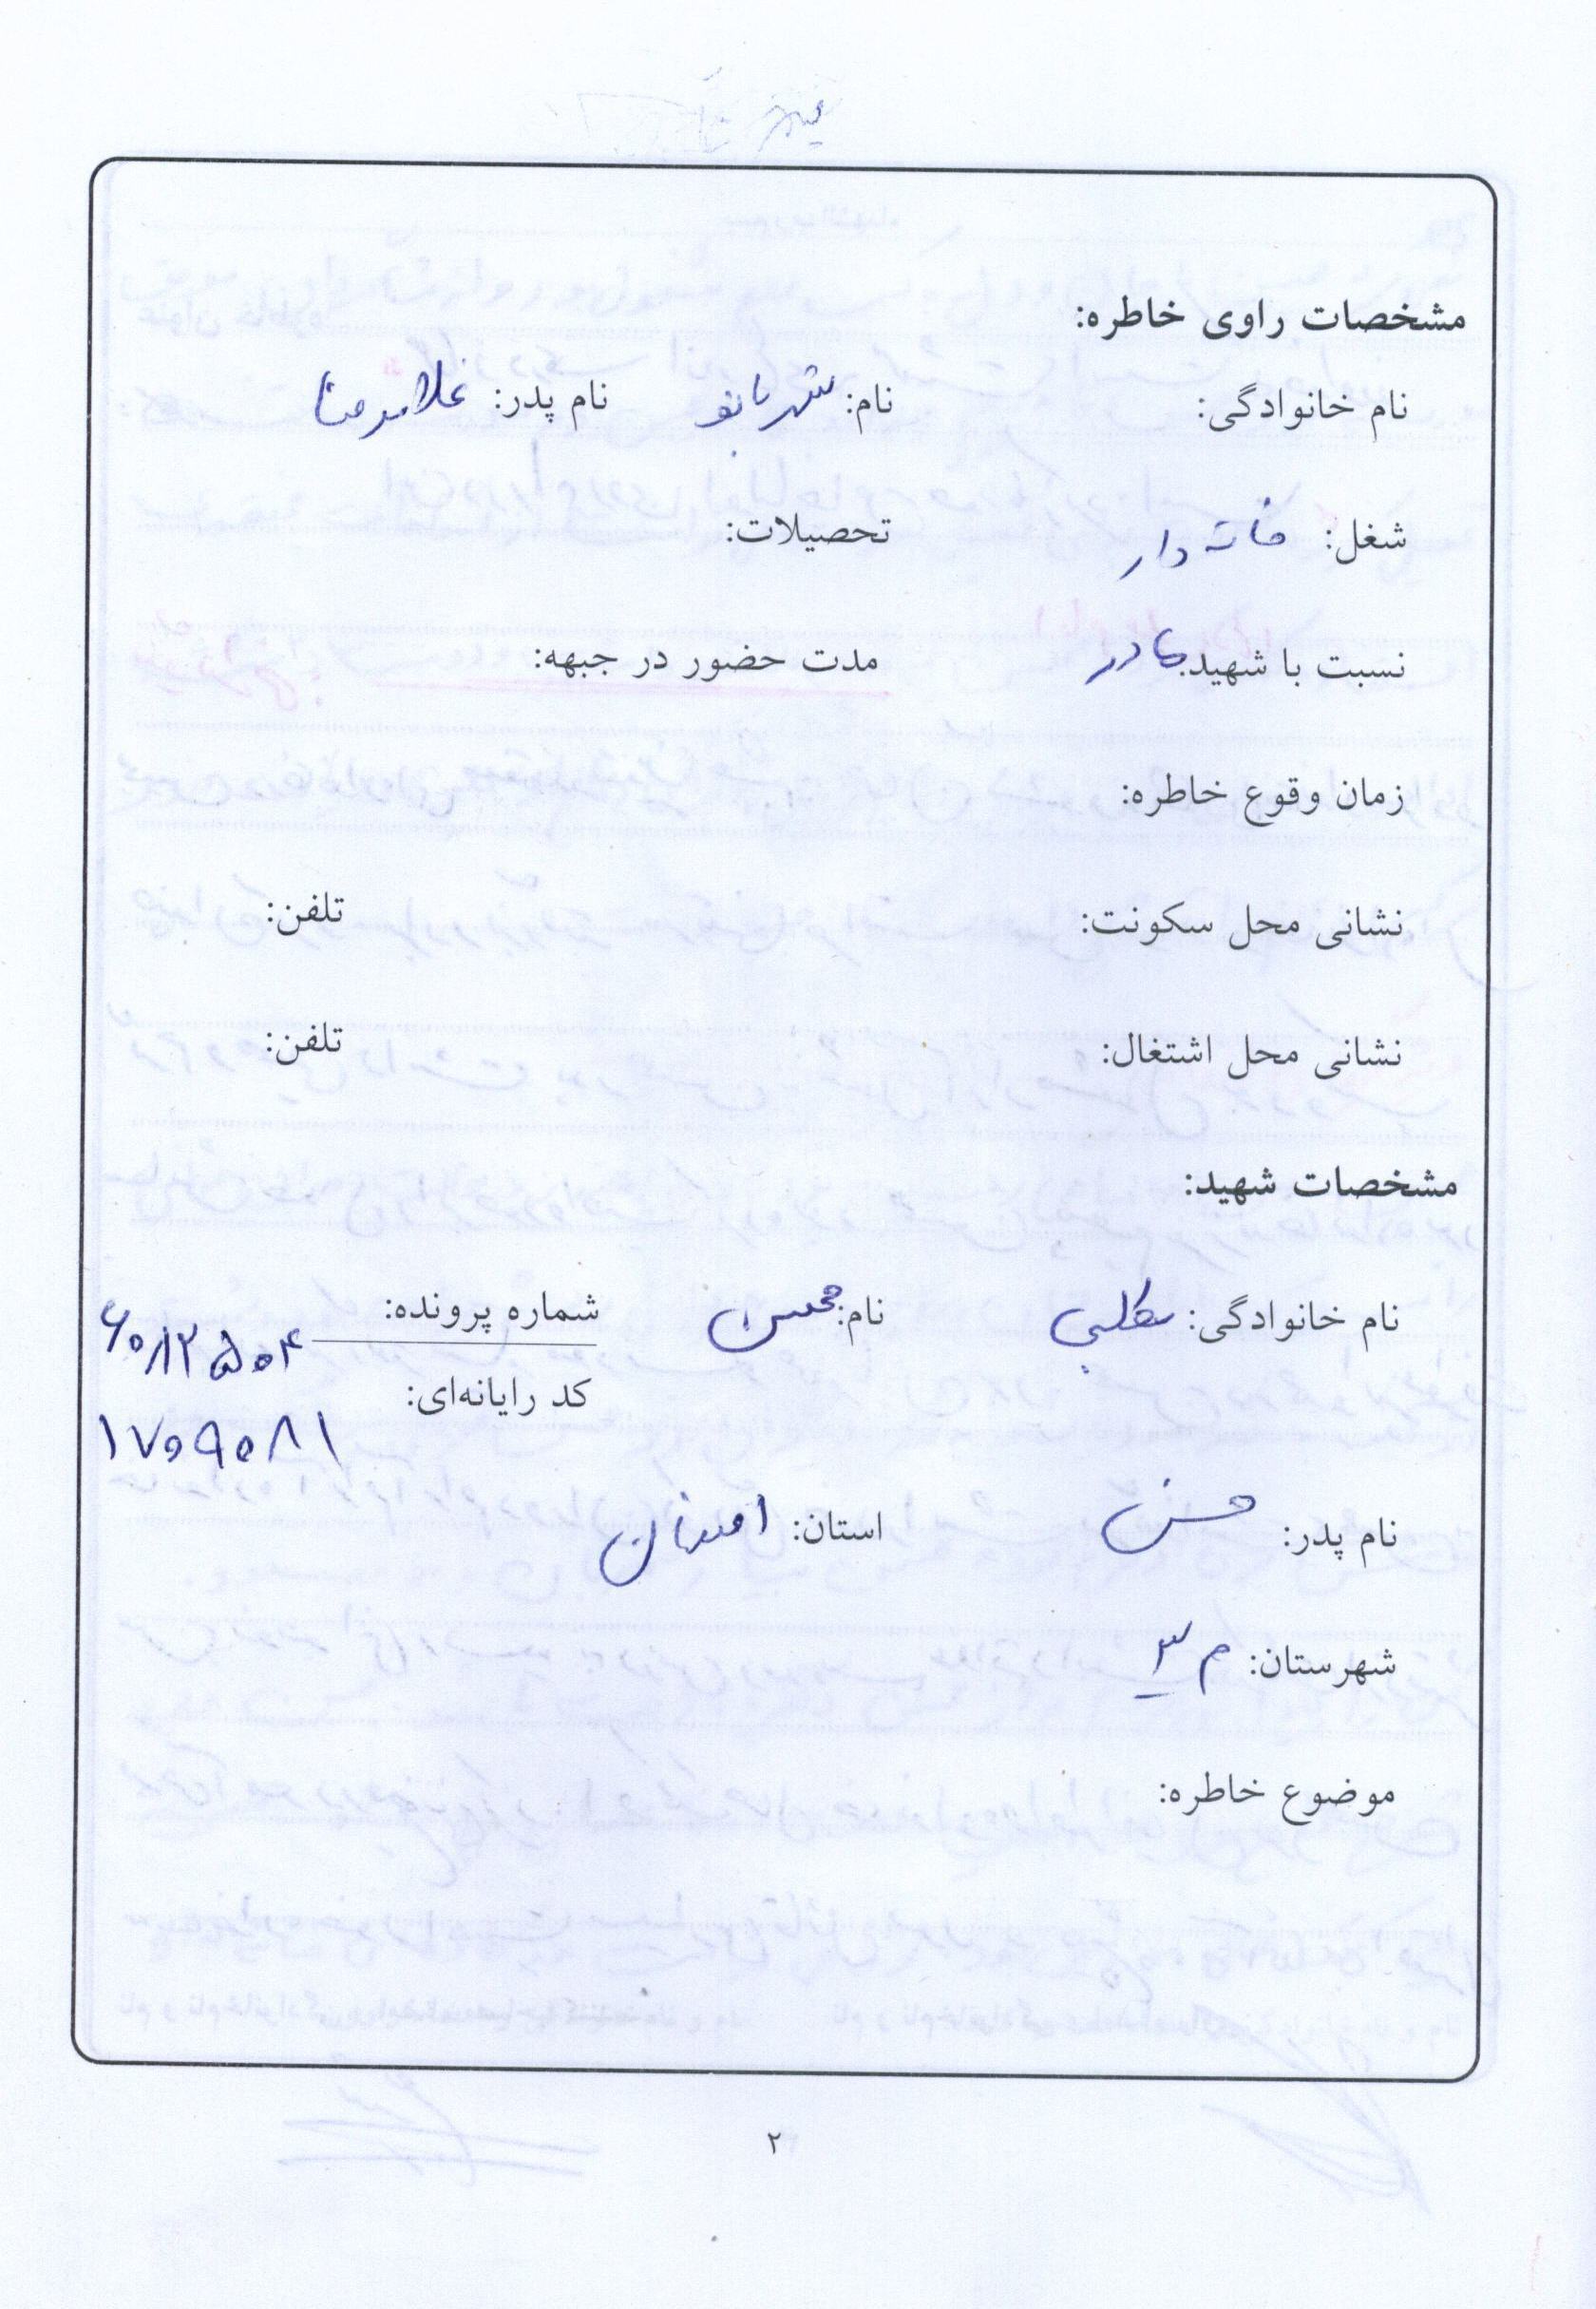 مشخصات راوی خاطره:
نام خانوادگی: نام: شهربانو نام پدر: غلامرضا
شغل: خانه دار تحصیلات:
نسبت با شهید: مادر مدت حضور در جبهه:
زمان وقوع خاطره:
نشانی محل سکونت: تلفن:
نشانی محل اشتغال: تلفن:
مشخصات شهید:
نام خانوادگی: نام: محسن شماره پرونده: ۶۰۱۲۵۰۴
کد رایانه‌ای: ۱۷۰۹۰۸۱
نام پدر: حسن استان: اصفهان
شهرستان: م ۳
موضوع خاطره:
۲